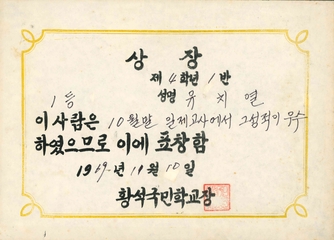 상 장
제 4 학년 1 반
1등 성명 유 치 열
이 사람은 10월말 일제고사에서 그 성적이 우수
하였으므로 이에 표창함
1969년 11월 10일
황석국민학교장